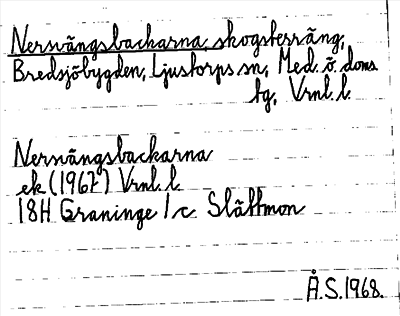 Nervängsbackarna, skogsterräng,
Bredsjöbygden, Ljustorps sn, Med. ö. doms
tg, Vrnl. l.
Nervängsbackarna
ek (1967) Vrnl. l.
18H Graninge 1 c Slättmon
Å.S.1968.